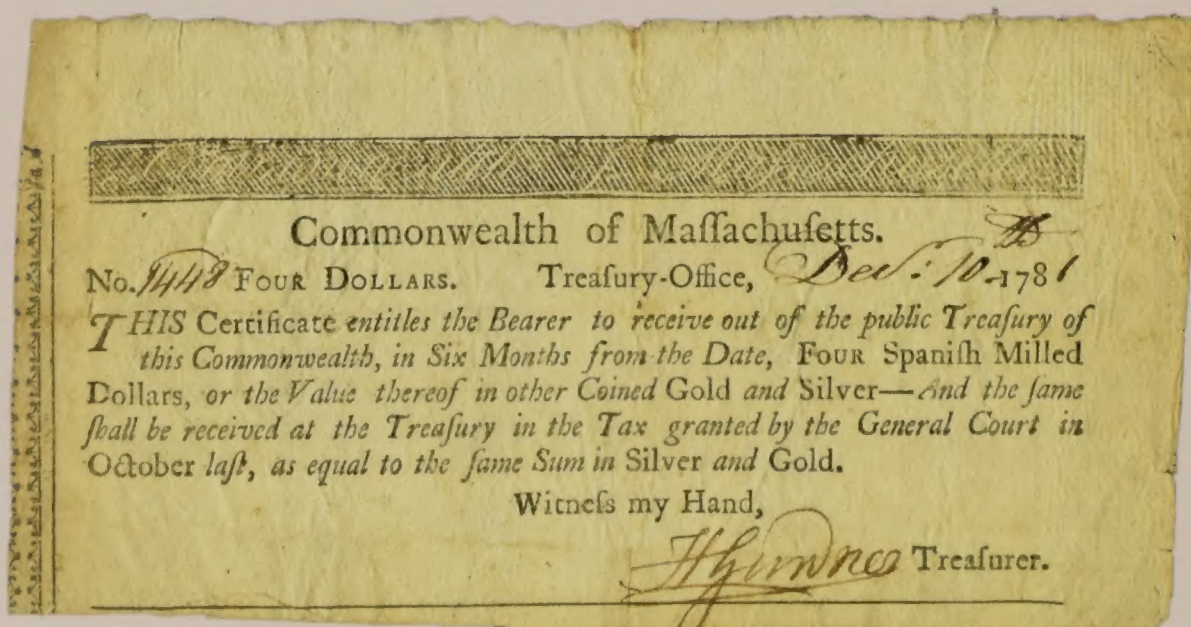 Commonwealth of Maſſachuſetts.
No. 1448 FOUR DOLLARS. Treaſury-Office, Decr: 10 1781
THIS Certificate entitles the Bearer to receive out of the public Treaſury of
this Commonwealth, in Six Months from the Date, FOUR Spaniſh Milled
Dollars, or the Value thereof in other Coined Gold and Silver—And the ſame
ſhall be received at the Treaſury in the Tax granted by the General Court in
October laſt, as equal to the ſame Sum in Silver and Gold.
Witneſs my Hand,
HGardner Treaſurer.